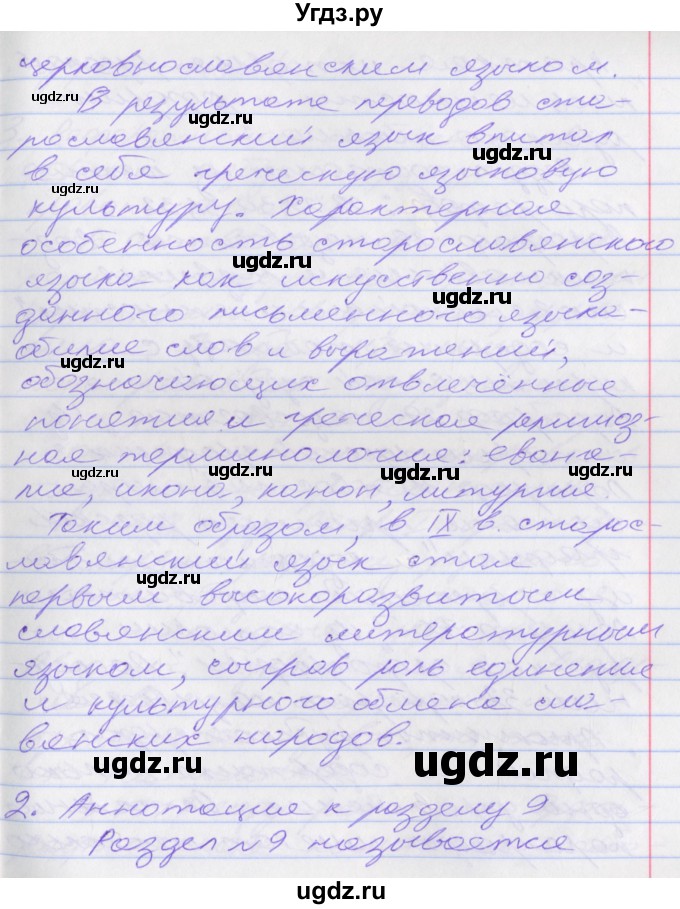 Угдз.ру
церковнославянским языком.
ugdz.ru
В результате переводов ста-
ugdz.ru
рославянский язык впитал
ugdz.ru
в себя греческую языковую
ugdz.ru
культуру. Характерная
особенность старославянского
ugdz.ru
языка как искусственно соз-
ugdz.ru
данного письменного языка-
обилие слов и выражений,
ugdz.ru
обозначающих отвлечённые
понятия и греческая религиоз-
ная терминология: еванге-
ugdz.ru ugdz.ru ugdz.ru
лие, икона, канон, литургия.
Таким образом, в IX в. старос-
лавянский язык стал
ugdz.ru
первым высокоразвитым
славянским литературным
языком, сыграв роль единения
и культурного обмена сла-
вянских народов.
ugdz.ru ugdz.ru ugdz.ru
2. Аннотация к разделу 9
Раздел №9 называется
ugdz.ru